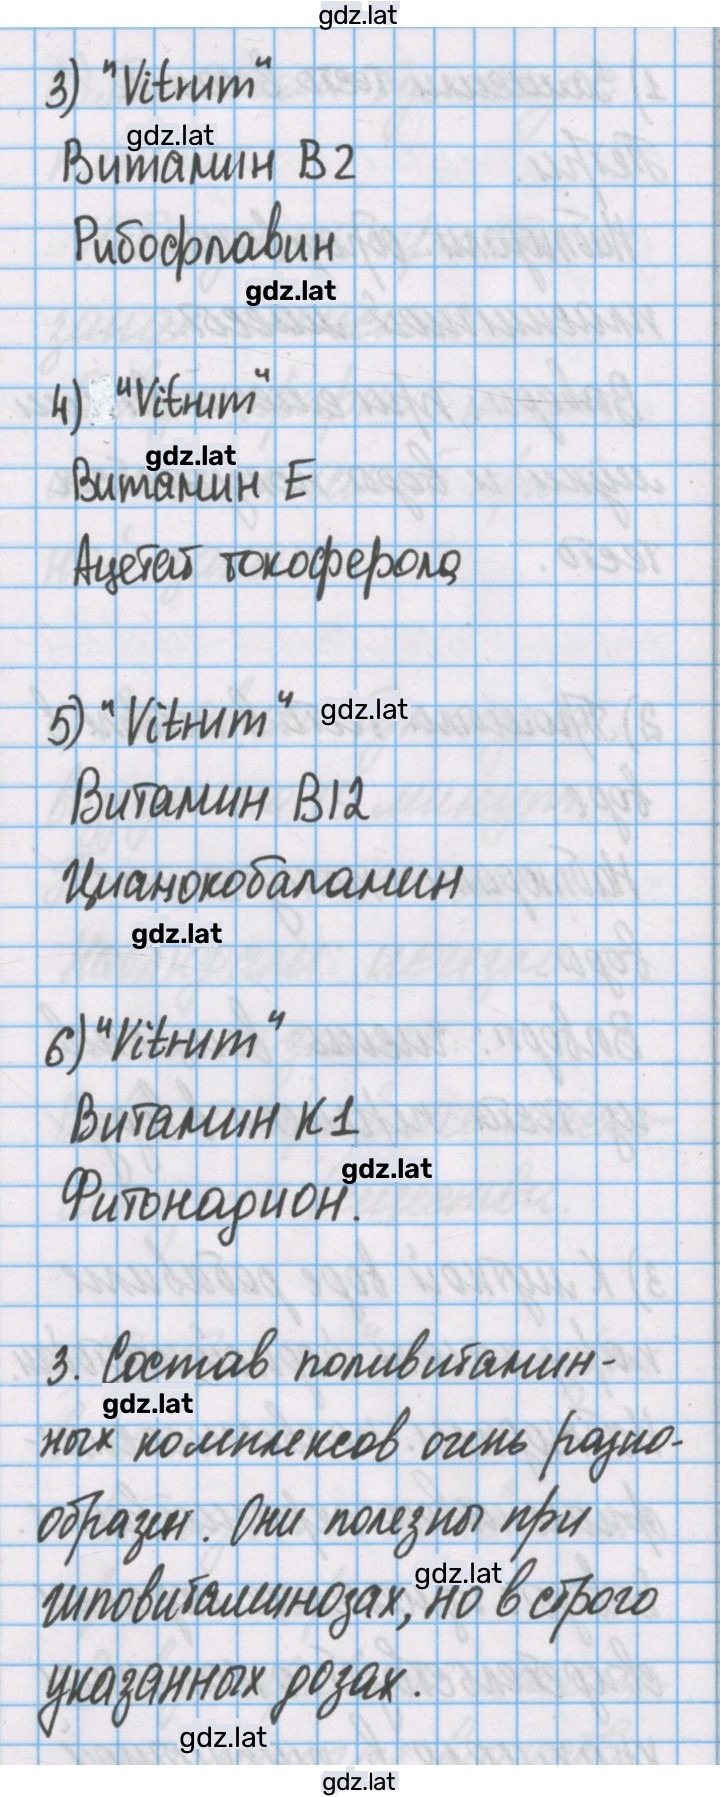 gdz.lat
3) "Vitrum"
gdz.lat
Витамин B2
Рибофлавин
gdz.lat
4) "Vitrum"
gdz.lat
Витамин E
Ацетат токоферола
5) "Vitrum"
gdz.lat
Витамин B12
Цианокобаламин
gdz.lat
6) "Vitrum"
Витамин K1
gdz.lat
Фитонадион.
3. Состав поливитамин-
gdz.lat
ных комплексов очень разно-
образен. Они полезны при
gdz.lat
гиповитаминозах, но в строго
указанных дозах.
gdz.lat
gdz.lat